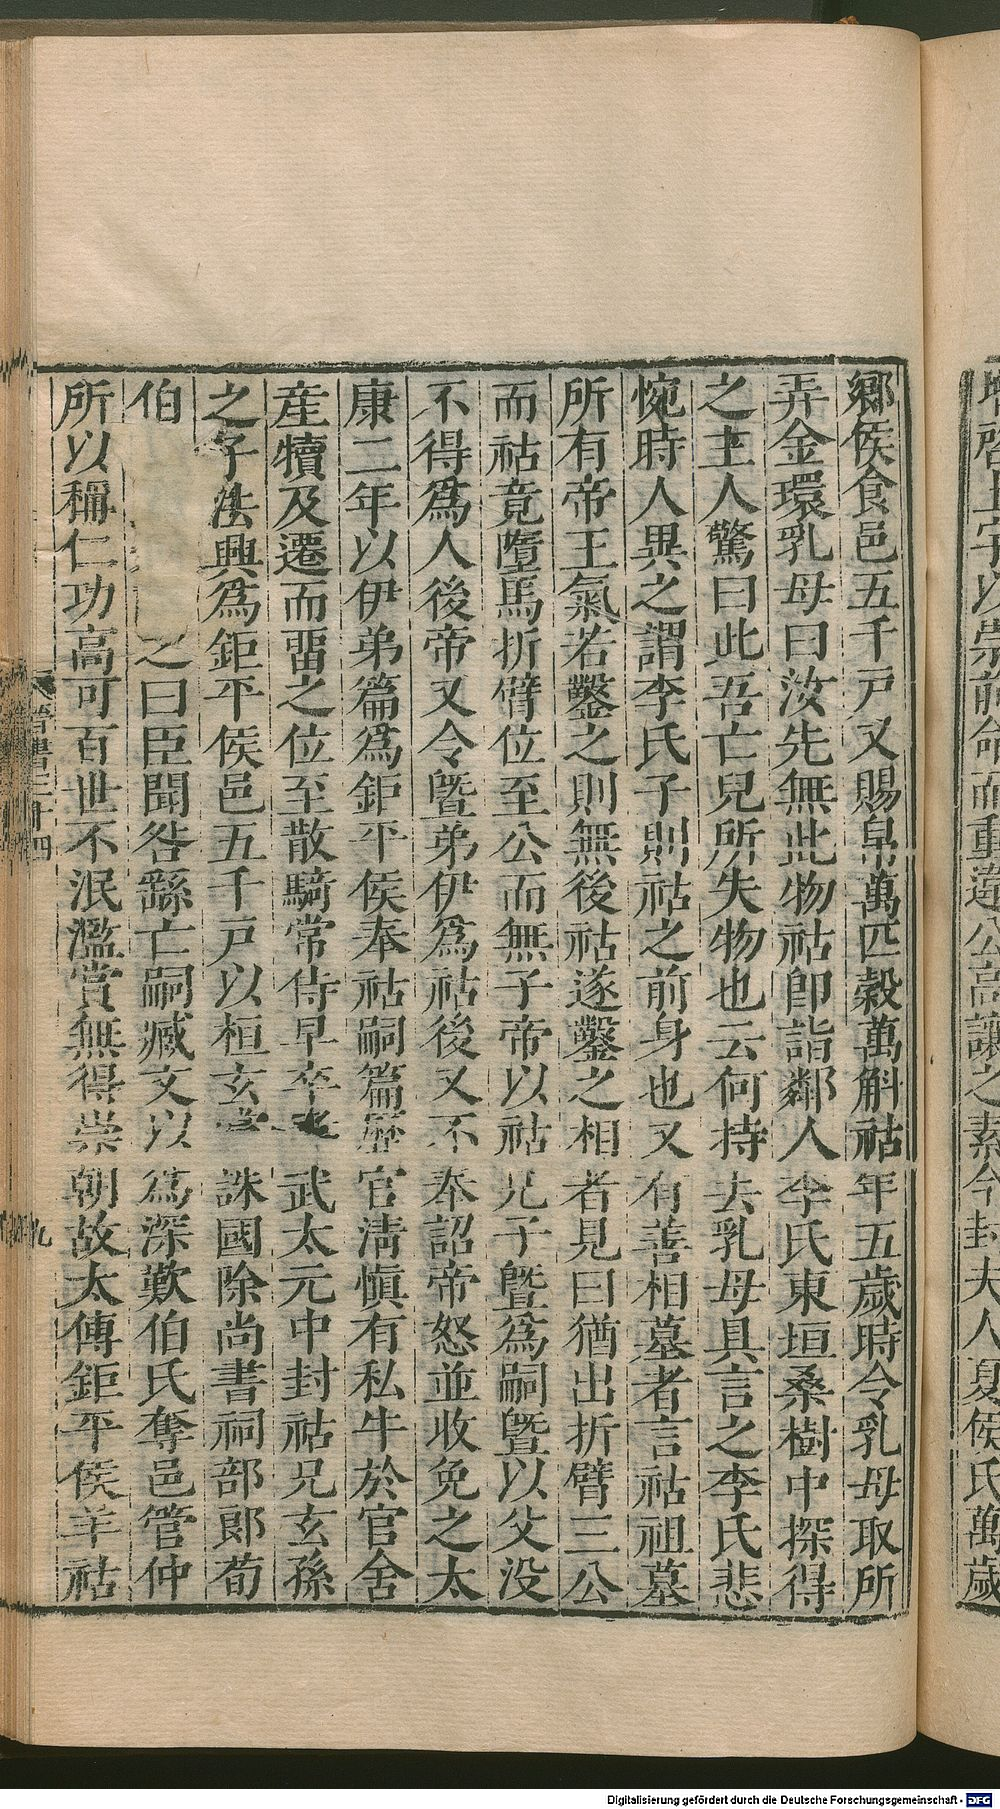 增啓土宇以崇前命而重違公高讓之素今封夫人夏侯氏萬歲
鄉侯食邑五千戸又賜帛萬匹穀萬斛祜年五歲時令乳母取所
弄金環乳母曰汝先無此物祜即詣鄰人李氏東垣桑樹中探得
之主人驚曰此吾亡兒所失物也云何持去乳母具言之李氏悲
惋時人異之謂李氏子則祜之前身也又有善相墓者言祜祖墓
所有帝王氣若鑿之則無後祜遂鑿之相者見曰猶出折臂三公
而祜竟墮馬折臂位至公而無子帝以祜兄子暨爲嗣暨以父没
不得爲人後帝又令暨弟伊爲祜後又不奉詔帝怒並收免之太
康二年以伊弟篇爲鉅平侯奉祜嗣篇歷官淸愼有私牛於官舍
産犢及遷而畱之位至散騎常侍早卒孝武太元中封祜兄玄孫
之子法興爲鉅平侯邑五千戸以桓玄黨誅國除尚書祠部郎荀
伯之曰臣聞咎繇亡嗣臧文以爲深歎伯氏奪邑管仲
所以稱仁功高可百世不泯濫賞無得崇朝故太傅鉅平侯羊祜
晉書三十四 九
Digitalisierung gefördert durch die Deutsche Forschungsgemeinschaft - DFG